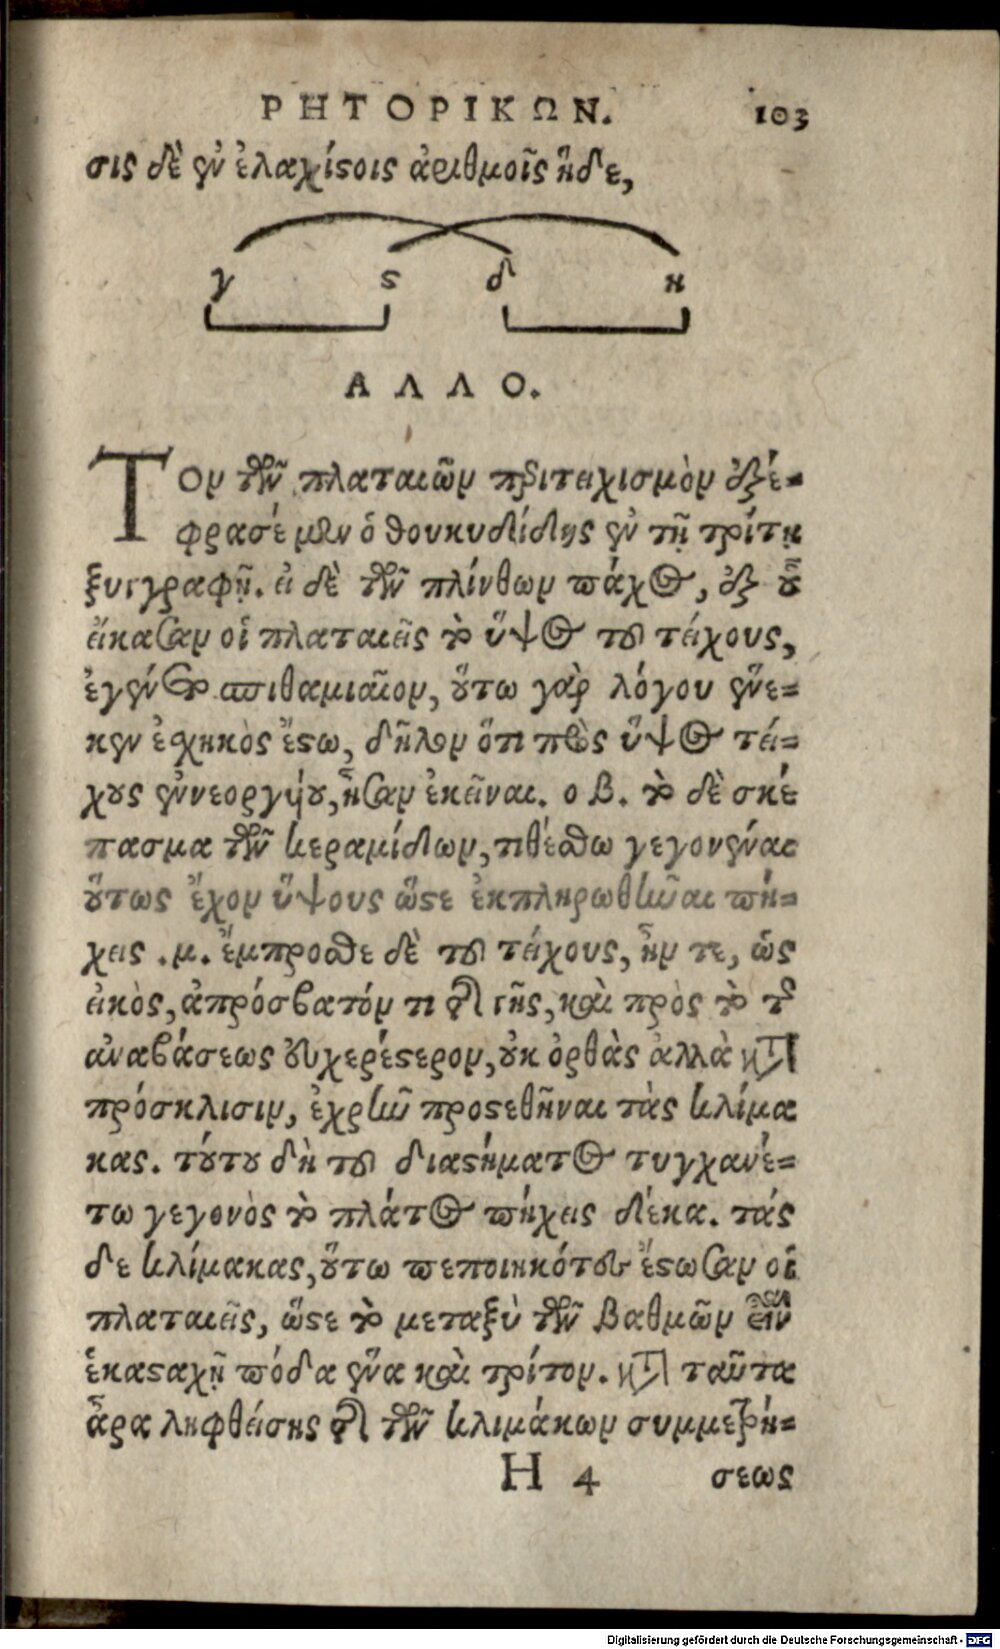 ΡΗΤΟΡΙΚΩΝ. 103
σις δὲ ἐν ἐλαχίστοις ἀριθμοῖς ἥδε,
γ ϛ δ η
ΑΛΛΟ.
ΤΟν τῶν πλαταιῶν περιτειχισμὸν ἐξέ-
φρασέ μεν ὁ θουκυδίδης ἐν τῇ τρίτῃ
ξυγγραφῇ. εἰ δὲ τῶν πλίνθων πάχος, ἐξ οὗ
εἴκασαν οἱ πλαταιεῖς τὸ ὕψος τοῦ τείχους,
ἐγένετο σπιθαμιαῖον, οὕτω γὰρ λόγου ἕνε-
κεν ἐχηκὸς ἔστω, δῆλον ὅτι πρὸς ὕψος τεί-
χους ἐννεοργύου, ἦσαν ἐκεῖναι. ο β. τὸ δὲ σκέ
πασμα τῶν κεραμίδων, τιθέσθω γεγονέναι
οὕτως ἔχον ὕψους ὥστε ἐκπληρωθῆναι πή-
χεις .μ. ἔμπροσθε δὲ τοῦ τείχους, ἦν τε, ὡς
εἰκὸς, ἀπρόσβατόν τι τῆς γῆς, καὶ πρὸς τὸ τῆς
ἀναβάσεως εὐχερέστερον, οὐκ ὀρθὰς ἀλλὰ κατὰ
πρόσκλισιν, ἐχρῆν προστεθῆναι τὰς κλίμα
κας. τούτου δὴ τοῦ διαστήματος τυγχανέ-
τω γεγονὸς τὸ πλάτος πήχεις δέκα. τάς
δε κλίμακας, οὕτω πεποιηκότες ἔστωσαν οἱ
πλαταιεῖς, ὥστε τὸ μεταξὺ τῶν βαθμῶν εἶναι
ἑκασταχῇ πόδα ἕνα καὶ τρίτον. κατὰ ταῦτα
ἄρα ληφθείσης τῆς τῶν κλιμάκων συμμετρή-
Η 4 σεως
Digitalisierung gefördert durch die Deutsche Forschungsgemeinschaft - DFG